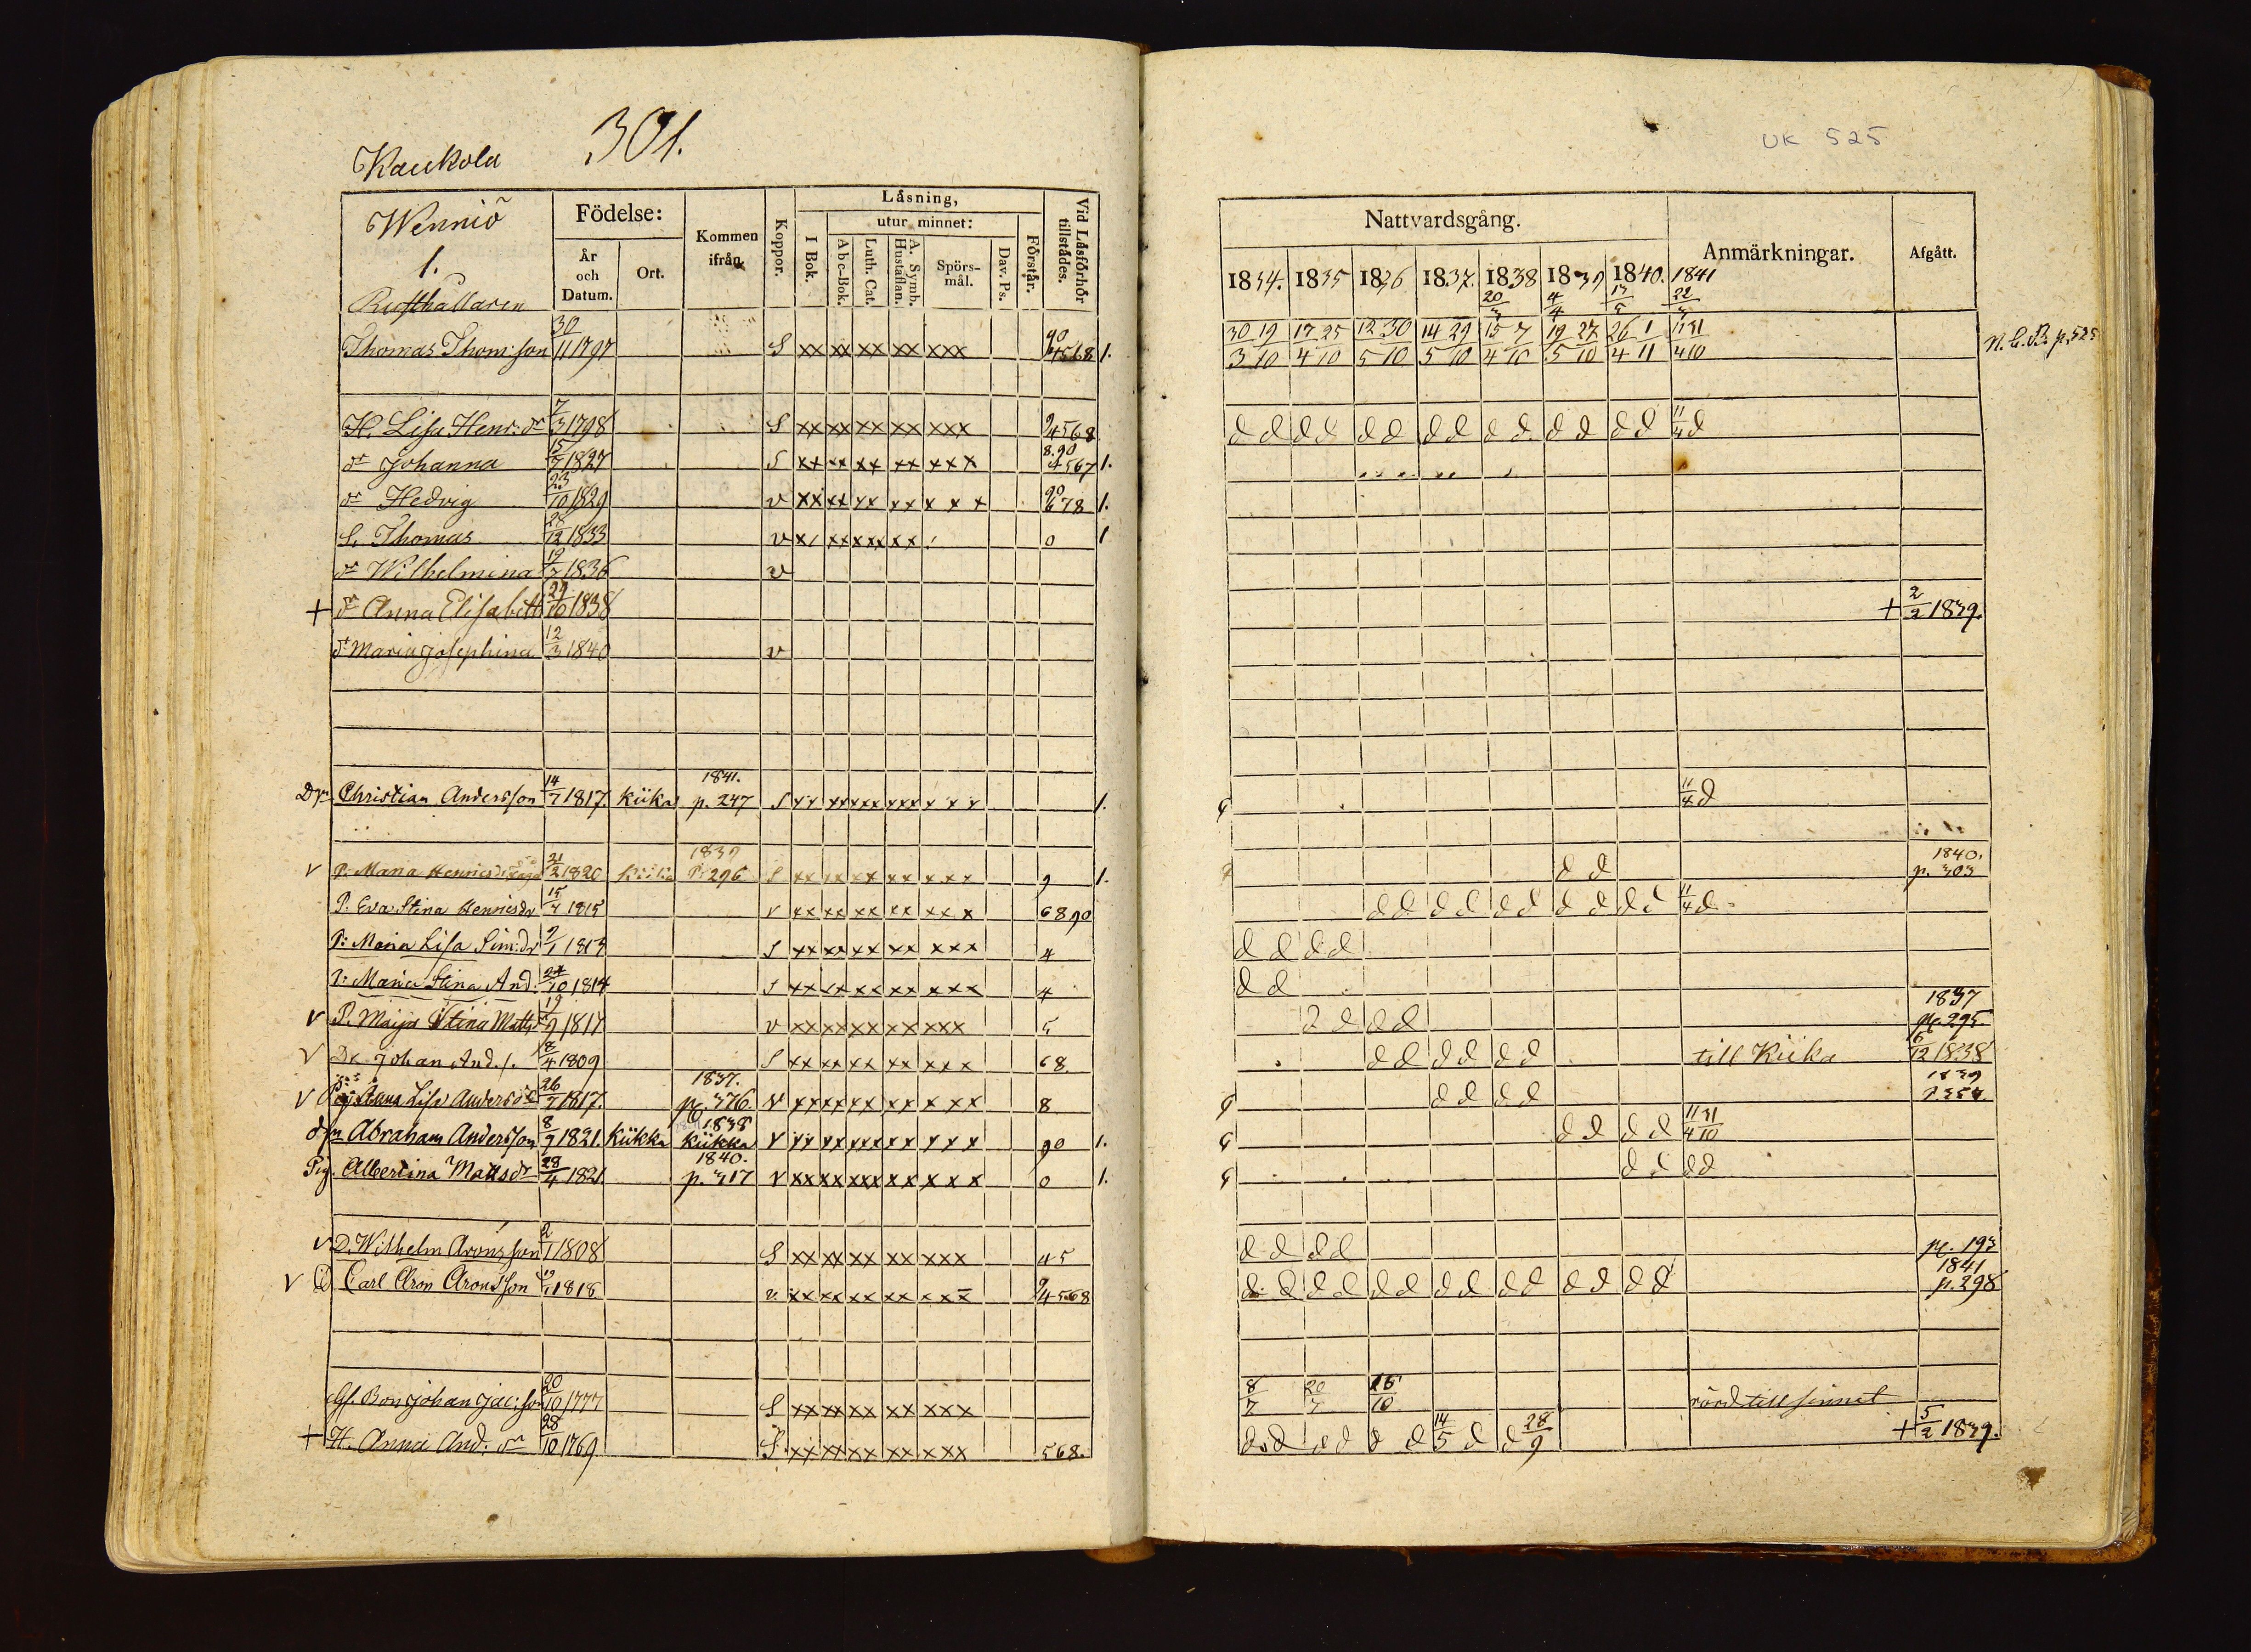 Kaukola 301.
UK 525
Wenniö
1.
Rusthållaren
Födelse:
År och Datum.
Ort.
Kommen ifrån
Koppor.
Läsning,
I Bok.
utur minnet:
Abc-Bok.
Luth. Cat.
A. Symb. Hustaflan.
Spörs-mål.
Dav. Ps.
Förstår.
Vid Läsförhör tillstädes.
Nattvardsgång.
Anmärkningar.
Afgått.
1834. 1835 1836 1837. 1838 1839 1840. 1841
Thomas Thom:son 30/11 1797 S xx xx xx xx xxx 90 4568 1. 30/3 19/10 17/4 25/10 12/5 30/10 14/5 29/10 15/4 7/10 19/5 27/10 26/4 1/11 11/4 31/10 N.C.B. p. 525
H. Lisa Henr: dr 7/3 1798 S xx xx xx xx xxx 9 4568 d d d d d d d d d d d d d d 11/4 d
dr Johanna 15/7 1827 S xx xx xx xx xxx 8.90 4567 1.
dr Hedvig 23/10 1829 v xx xx xx xx x x x 90 678 1.
S. Thomas 28/12 1833 v x/ xx xx xx / 0 1
dr Wilhelmina 19/7 1836 v
+ dr Anna Elisabeth 29/10 1838 + 2/2 1839.
dr Maria Josephina 12/3 1840 v
Dr. Christian Andersson 14/7 1817. Kiika 1841. p. 247 S xx xx xxx xxx x x x 1. 11/4 d
v P: Maria Henricsdr 21/2 1820 Kiika 1839 p. 296 S xx xx xx xx xxx 9 1. d d 1840. p. 303
P: Eva Stina Henricsdr 15/4 1815 v xx xx xx xx xx x 6890 d d d d d d d d d d 11/4 d
P: Maria Lisa Sim:dr 1813 S xx xx xx xx xxx 4 d d d d
P: Maria Stina And: 24/10 1814 S xx xx xx xx xxx 4 d d
v P. Maija Stina Matts dr 19/9 1817 v xx xx xx xx xxx 5 d d d d 1837 p. 295.
v Dr Johan And. s. 8/4 1809 S xx xx xx xx xxx 68 d d d d d d till Kiika 6/12 1838
v Pig Anna Lisa Anders dr 26/7 1817. 1837. p. 376. v xx xx xx xx x xx 8 d d d d 1839 p. 354
drn Abraham Andersson 8/9 1821. Kiikka 1838 Kiikka v xx xx xxx xx x x x 90 1. d d d d 11/4 31/10
Pig. Albertina Mattsdr 28/4 1821. 1840. p. 317 v xx xx xxx xx x x x 0 1. d d d d
v D. Wilhelm Aronsson 2/1 1808 S xx xx xx xx xxx 45 d d d d p. 193
v D Carl Aron Aronsson 1818 v xx xx xx xx xxx 9 4568 d d d d d d d d d d d d d d 1841 p. 298
Gf. Bon Johan Jac:son 20/10 1777 S xx xx xx xx xxx 8/7 20/7 16/10 rörd till sinnet
+ H. Anna And. dr 28/10 1769 S. xx xx xx xx xxx 568. d d d d d d 14/5 d d 28/9 + 5/2 1839.